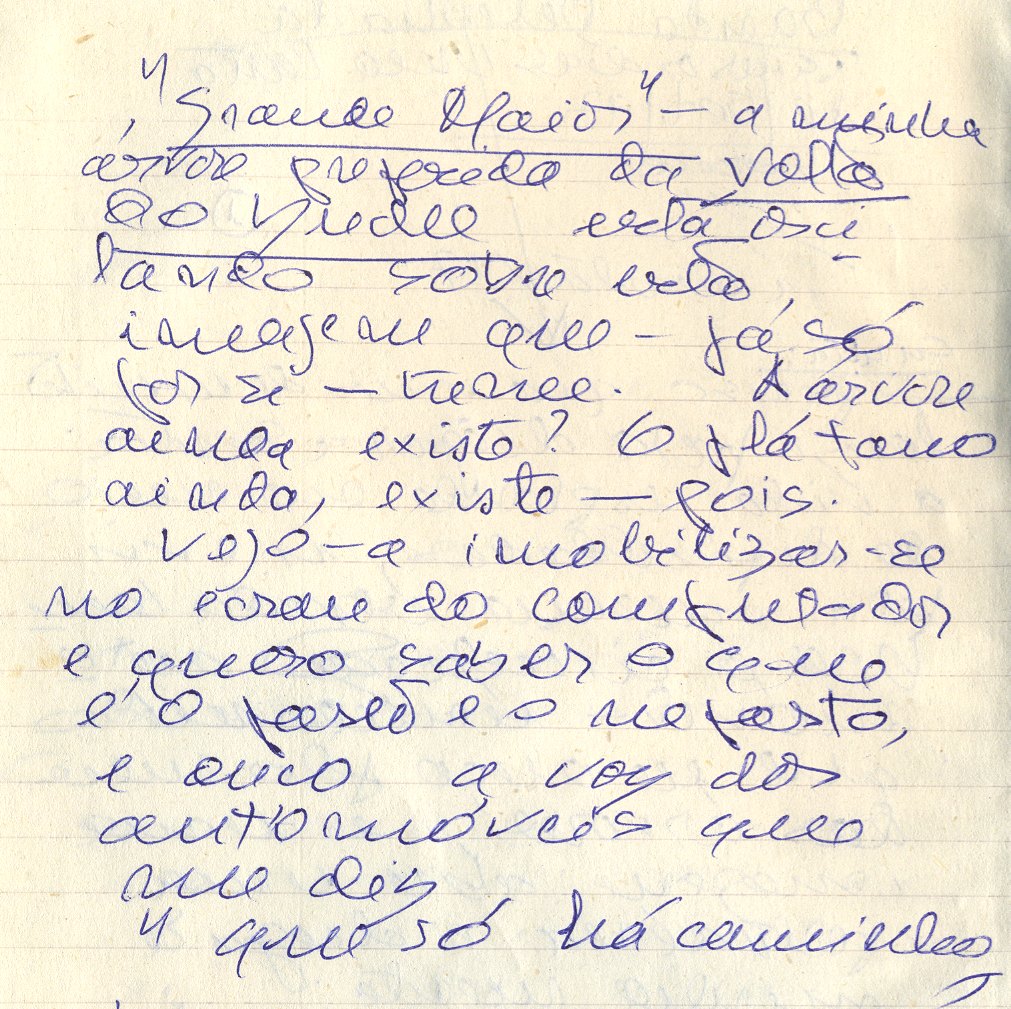 "Grande Maior" — a minha
árvore preferida da Volta
do Duche está osci
lando sobre esta
imagem que — já só
por si — treme. A árvore
ainda existe? O plátano
ainda, existe — pois.
Vejo-a imobilizar-se
no écran do computador
e quero saber o que
é o fasto e o nefasto,
e ouço a voz dos
automóveis que
me diz
"que só há caminho,